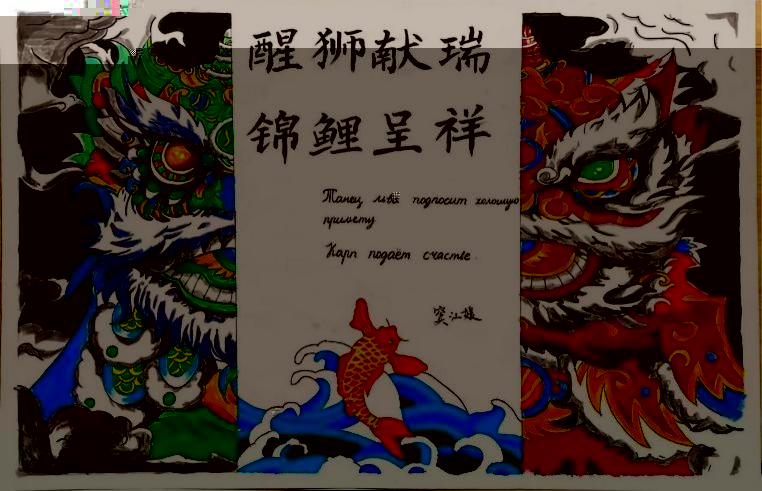 醒狮献瑞
锦鲤呈祥
Танец льва подносит хорошую
примету
Карп подаёт счастье.
窦江媛